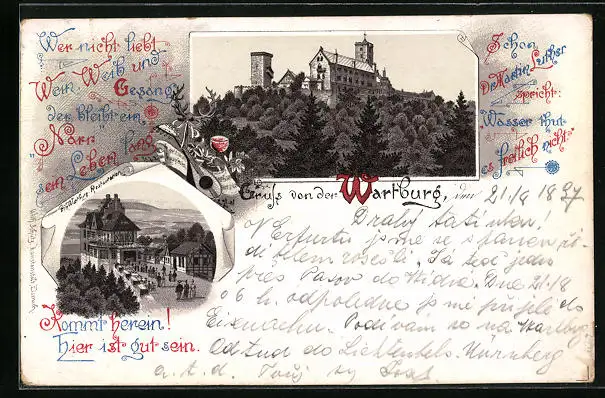 Wer nicht liebt
Wein, Weib und
Gesang
der bleibt ein
"Narr"
sein Leben lang
Schon
Dr. Martin Luther
spricht:
"Wasser thut
es freilich nicht"
Gruss von der Wartburg, den 21/8 1897
Restauration
Kommt herein!
Hier ist gut sein.
Drahý tatínku!
V Erfurtu jsme se s panem
rošešli. Já jedu
přes Pasov do Vídně. Dne 21./8
o 6 h. odpoledne jsme přijeli do
Eisenachu. Podívám se na Wartburg
Odtud do Lichtenfels. Nürnberg
a. t. d. Tvůj syn